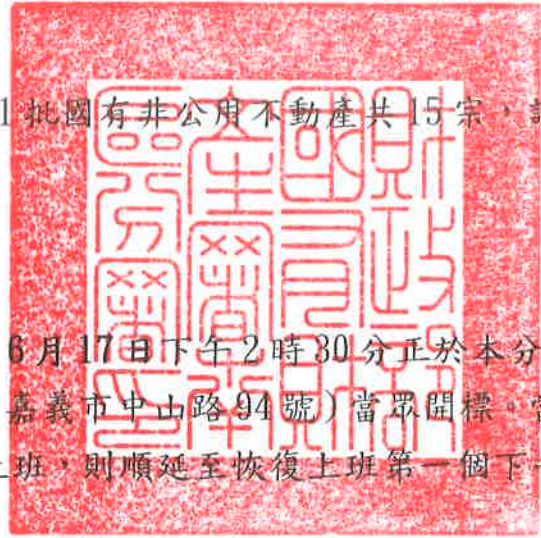 1批國有非公用不動產共15宗，
6月17日下午2時30分正於本分
嘉義市中山路94號)當眾開標。
上班，則順延至恢復上班第一個下
財政部
國有財
產署南
區分署印